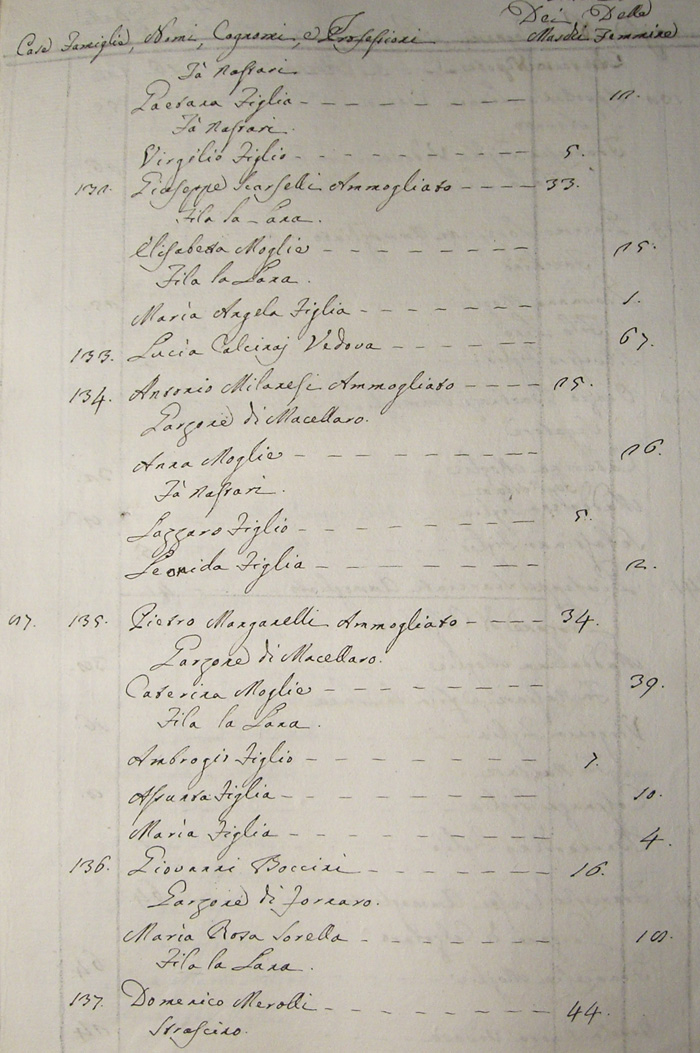 Dei Delle
Case Famiglie, Nomi, Cognomi, e Professioni Maschi Femmine
Fà Nastrari
Gaetana Figlia 12.
Fà Nastrari.
Virgilio Figlio 5.
132. Giuseppe Scarselli Ammogliato 33.
Fila la Lana.
Elisabetta Moglie 25.
Fila la Lana.
Maria Angela Figlia 1.
133. Lucia Calcinaj Vedova 67.
134. Antonio Milanesi Ammogliato 25.
Garzone di Macellaro.
Anna Moglie 26.
Fà Nastrari.
Lazzaro Figlio 5.
Leonida Figlia 2.
57. 135. Pietro Manganelli Ammogliato 34.
Garzone di Macellaro.
Caterina Moglie 39.
Fila la Lana.
Ambrogio Figlio 7.
Assunta Figlia 10.
Maria Figlia 4.
136. Giovanni Boccini 16.
Garzone di Fornaro.
Maria Rosa Sorella
Fila la Lana.
137. Domenico Merolli 44.
Strascino.